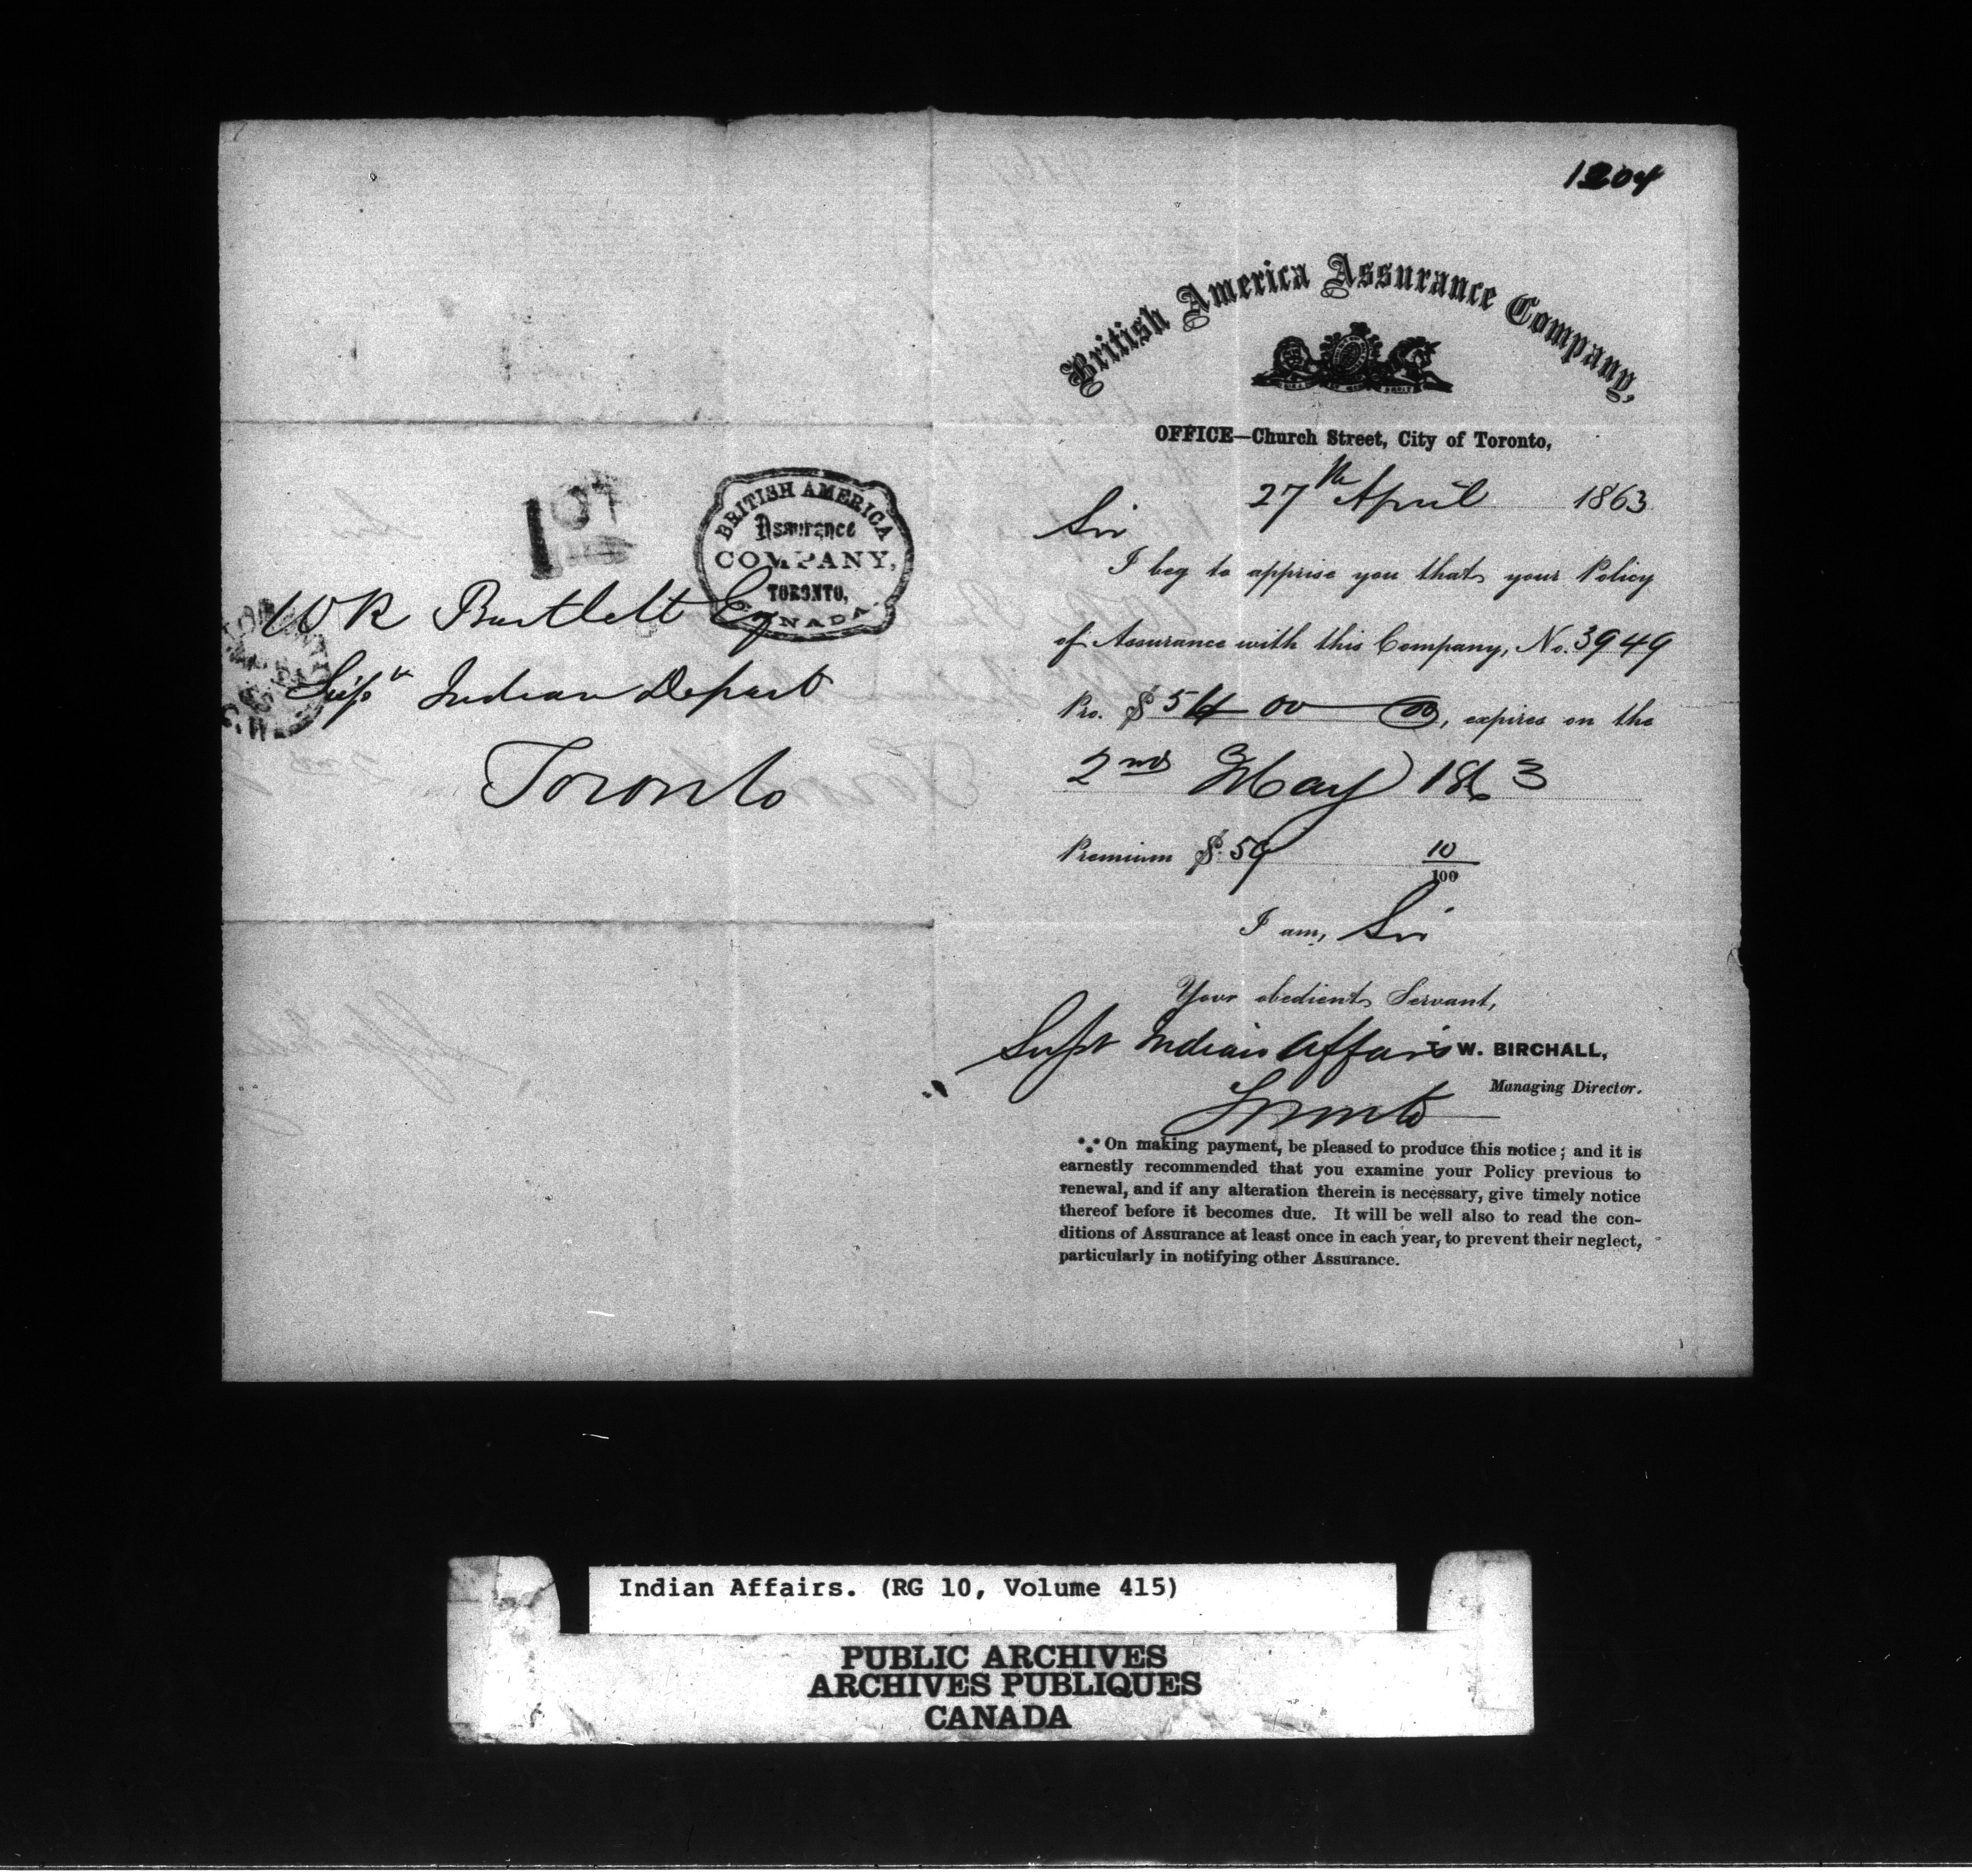 1204
British America Assurance Company,
OFFICE—Church Street, City of Toronto,
27th April 1863
Sir
I beg to apprise you that your Policy
of Assurance with this Company, No. 3949
Pro. $ 5400 00, expires on the
2nd May 1863
Premium $. 59 10/100
I am, Sir
Your obedient Servant,
T. W. BIRCHALL,
Managing Director.
Supt Indian Affairs
Toronto
On making payment, be pleased to produce this notice; and it is
earnestly recommended that you examine your Policy previous to
renewal, and if any alteration therein is necessary, give timely notice
thereof before it becomes due. It will be well also to read the con-
ditions of Assurance at least once in each year, to prevent their neglect,
particularly in notifying other Assurance.
BRITISH AMERICA
Assurance
COMPANY,
TORONTO,
CANADA.
W R Bartlett Esq
Supt Indian Depart
Toronto
Indian Affairs. (RG 10, Volume 415)
PUBLIC ARCHIVES
ARCHIVES PUBLIQUES
CANADA